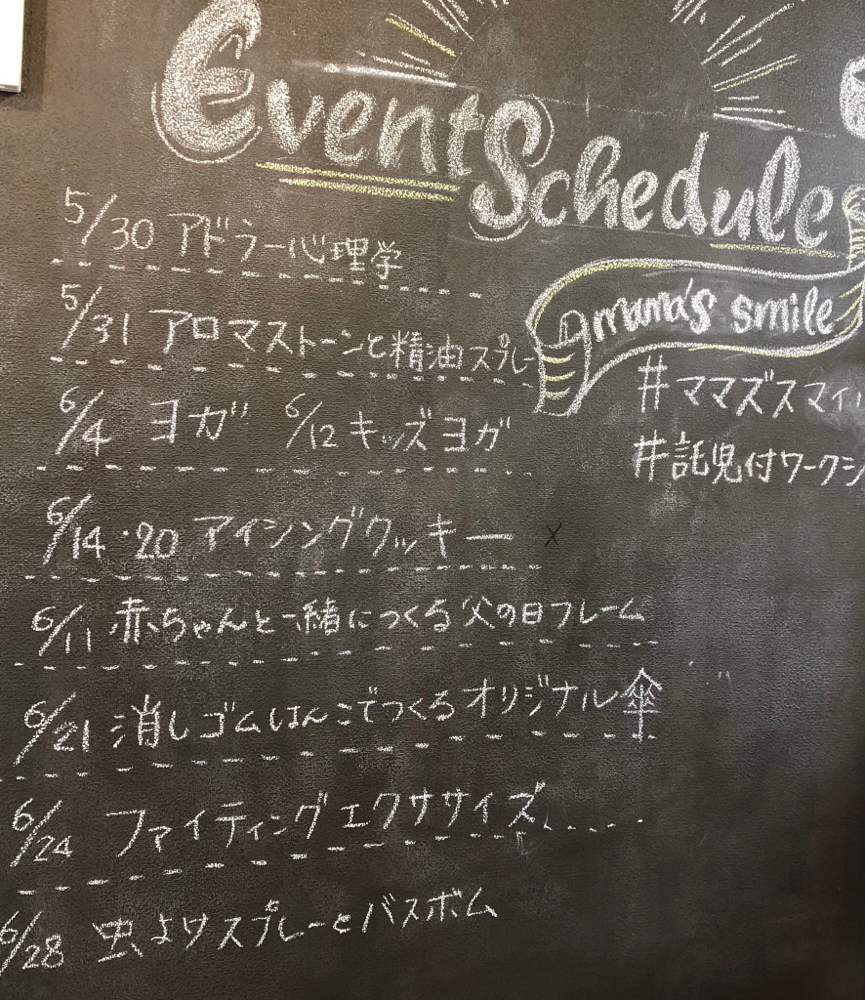 Event
Schedule
mama's smile
#ママズスマイ
#託児付ワークシ
5/30 アドラー心理学
5/31 アロマストーンと精油スプレー
6/4 ヨガ 6/12 キッズヨガ
6/14・20 アイシングクッキー
6/11 赤ちゃんと一緒につくる父の日フレーム
6/21 消しゴムはんこでつくるオリジナル傘
6/24 ファイティングエクササイズ
6/28 虫よけスプレーとバスボム